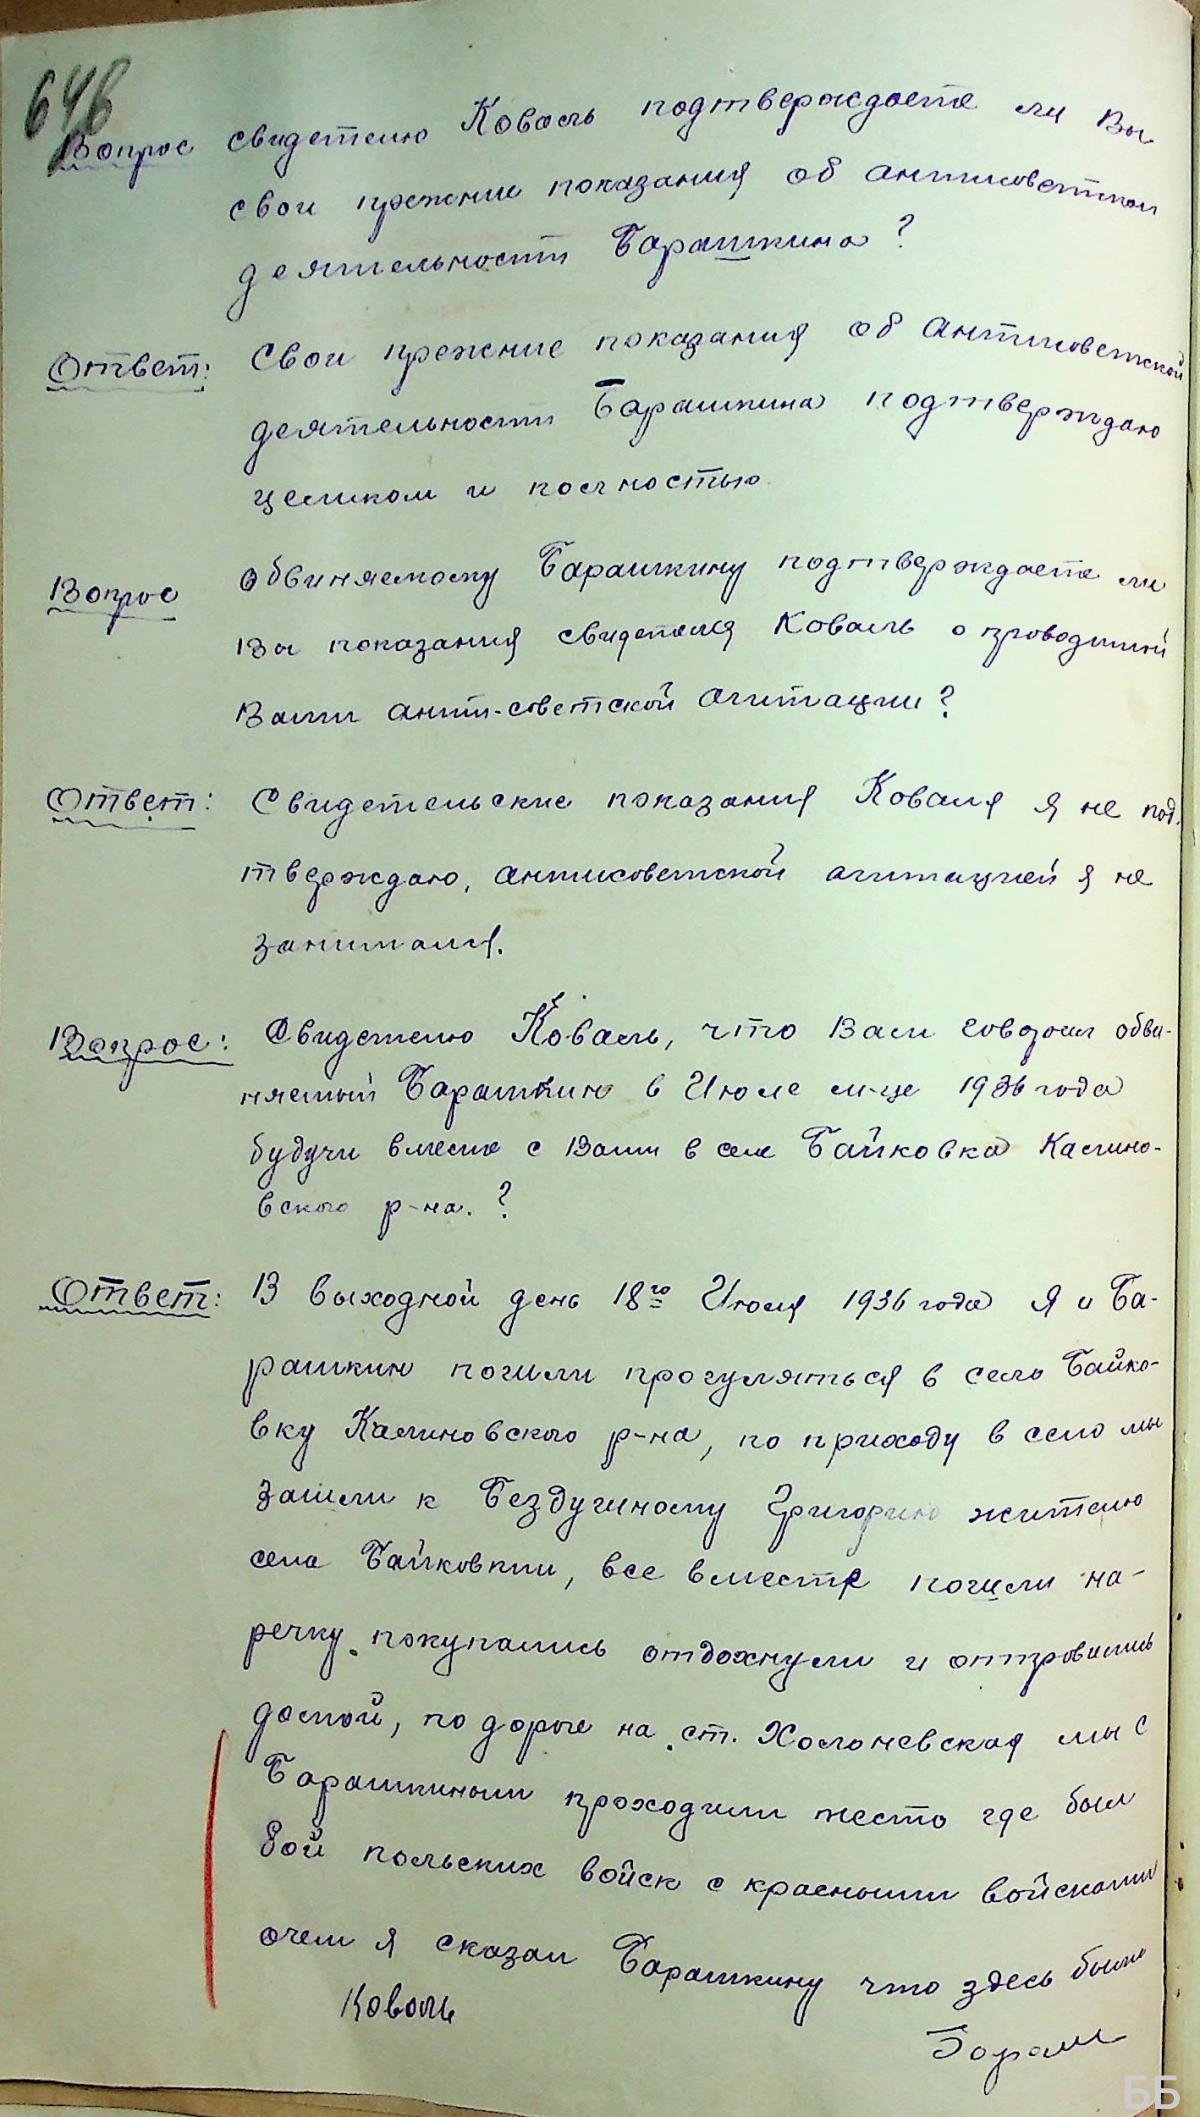 64б
Вопрос свидетелю Коваль подтверждаете ли Вы
свои прежние показания об антисоветской
деятельности Барашкина?
Ответ: Свои прежние показания об антисоветской
деятельности Барашкина подтверждаю
целиком и полностью
Вопрос обвиняемому Барашкину подтверждаете ли
Вы показания свидетеля Коваль о проводимой
Вами анти-советской агитации?
Ответ: Свидетельские показания Коваля я не под-
тверждаю, антисоветской агитацией я не
занимался.
Вопрос: Свидетелю Коваль, что Вам говорил обви-
няемый Барашкин в Июле м-це 1936 года
будучи вместе с Вами в селе Байковка Калино-
вского р-на.?
Ответ: В выходной день 18го Июля 1936 года я и Ба-
рашкин пошли прогуляться в село Байко-
вку Калиновского р-на, по приходу в село мы
зашли к Бездушному Григорию жителю
села Байковки, все вместе пошли на-
речку покупались отдохнули и отправились
домой, по дороге на ст. Холоневская мы с
Барашкиным проходили место где был
бой польских войск с красными войсками
очем я сказал Барашкину что здесь были
Коваль
Бараш
ББ